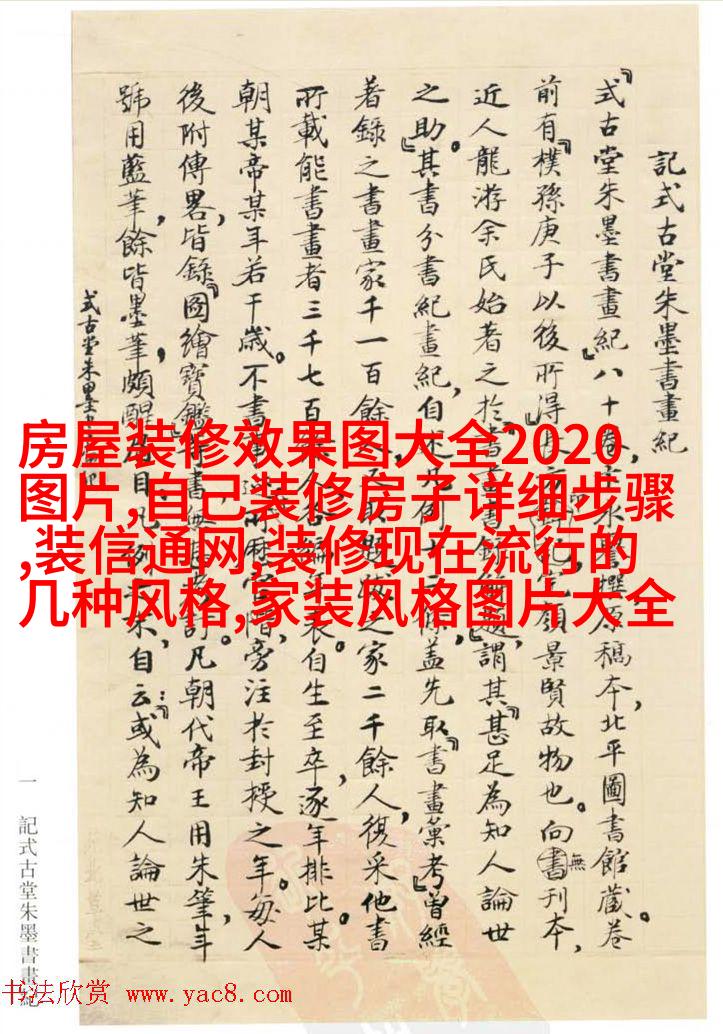 記式古堂朱墨書畫紀
『式古堂朱墨書畫紀』八十卷,卞永譽撰原稿本,北平圖書館藏。卷
前有『樸孫庚子以後所得』景賢故物也。向無刊本,
近人龍游余氏始著之於『書畫書錄解題』,謂其『甚足為知人論世
之助。』其書分書紀畫紀,自述凡例十二條,蓋先取『書畫彙考』曾經
著錄之書畫家千一百餘人,題跋之家二千餘人,後采他書
所載能書畫者三千七百餘人,各編年表,自生至卒,逐年排比某
朝某帝某年若干歲。不書事官階,旁注於封授之年。每人
後附傳畧,皆錄『圖繪寶鑑』書考訂。凡朝代帝王用朱筆,年
號用藍筆,餘皆墨筆,頗醒目。凡例末自云:或為知人論世之
式古堂朱墨
房屋装修效果图大全2020
图片,自己装修房子详细步骤
,装信通网,装修现在流行的
几种风格,家装风格图片大全
一 記式古堂朱墨書畫紀
书法欣赏 www.yac8.com